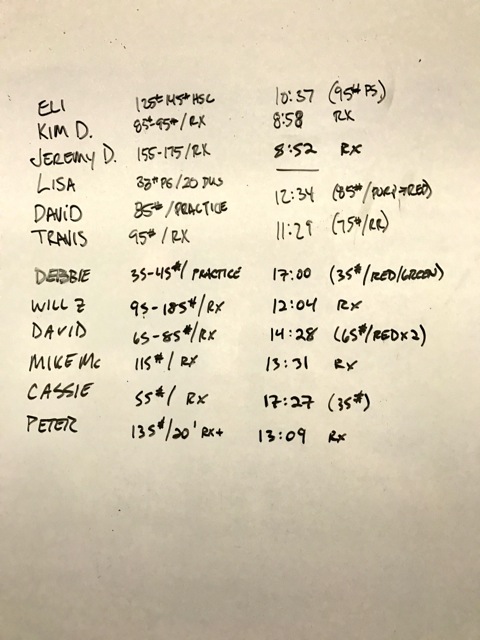 ELI 125# 145# HSC 10:37 (95# PS)
KIM D. 85#-95# / RX 8:58 RX
JEREMY D. 155-175 / RX 8:52 RX
LISA 38# PS / 20 DUS —
DAVID 85# / PRACTICE 12:34 (85# / PURP + RED)
TRAVIS 95# / RX 11:29 (75# / RR)
DEBBIE 35-45# / PRACTICE 17:00 (35# / RED/GREEN)
WILL Z 95-185# / RX 12:04 RX
DAVID 65-85# / RX 14:28 (65# / REDX2)
MIKE MC 115# / RX 13:31 RX
CASSIE 55# / RX 17:27 (35#)
PETER 135# / 20' RX+ 13:09 RX